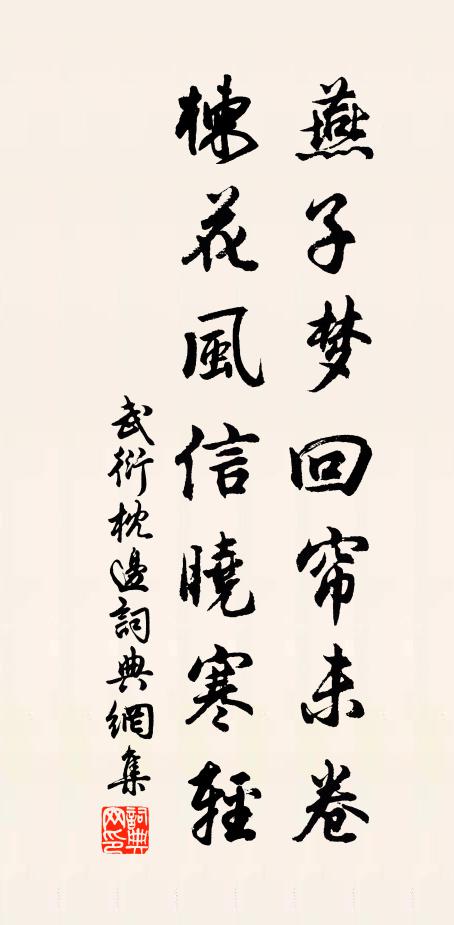 燕子梦回帘未卷
楝花風信曉寒輕
武衍枕邊詞典網集
詞典
网印